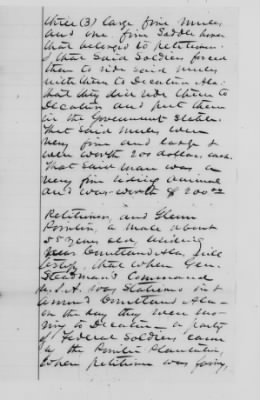 three (3) large fine mules,
and one fine Saddle horse
that belonged to petitioner.
& that said Soldiers forced
them to ride said mules
with them to Decatur Ala.
that they did ride them to
Decatur and put them
in the Government Stables.
That said mules were
very fine and large &
were worth 200 dollars each.
That said mare was a
very fine young animal
and was worth $ 200.00
Petitioner, and Glenn
a male about
58 years old, residing
near Courtland Ala, will
testify, that when Gen.
Steadman's Command
U.S.A. was Stationed in &
around Courtland Ala
on the day they were mo-
ving to Decatur a party
of Federal Soldiers came
to the Plantation,
where petitioner was living,